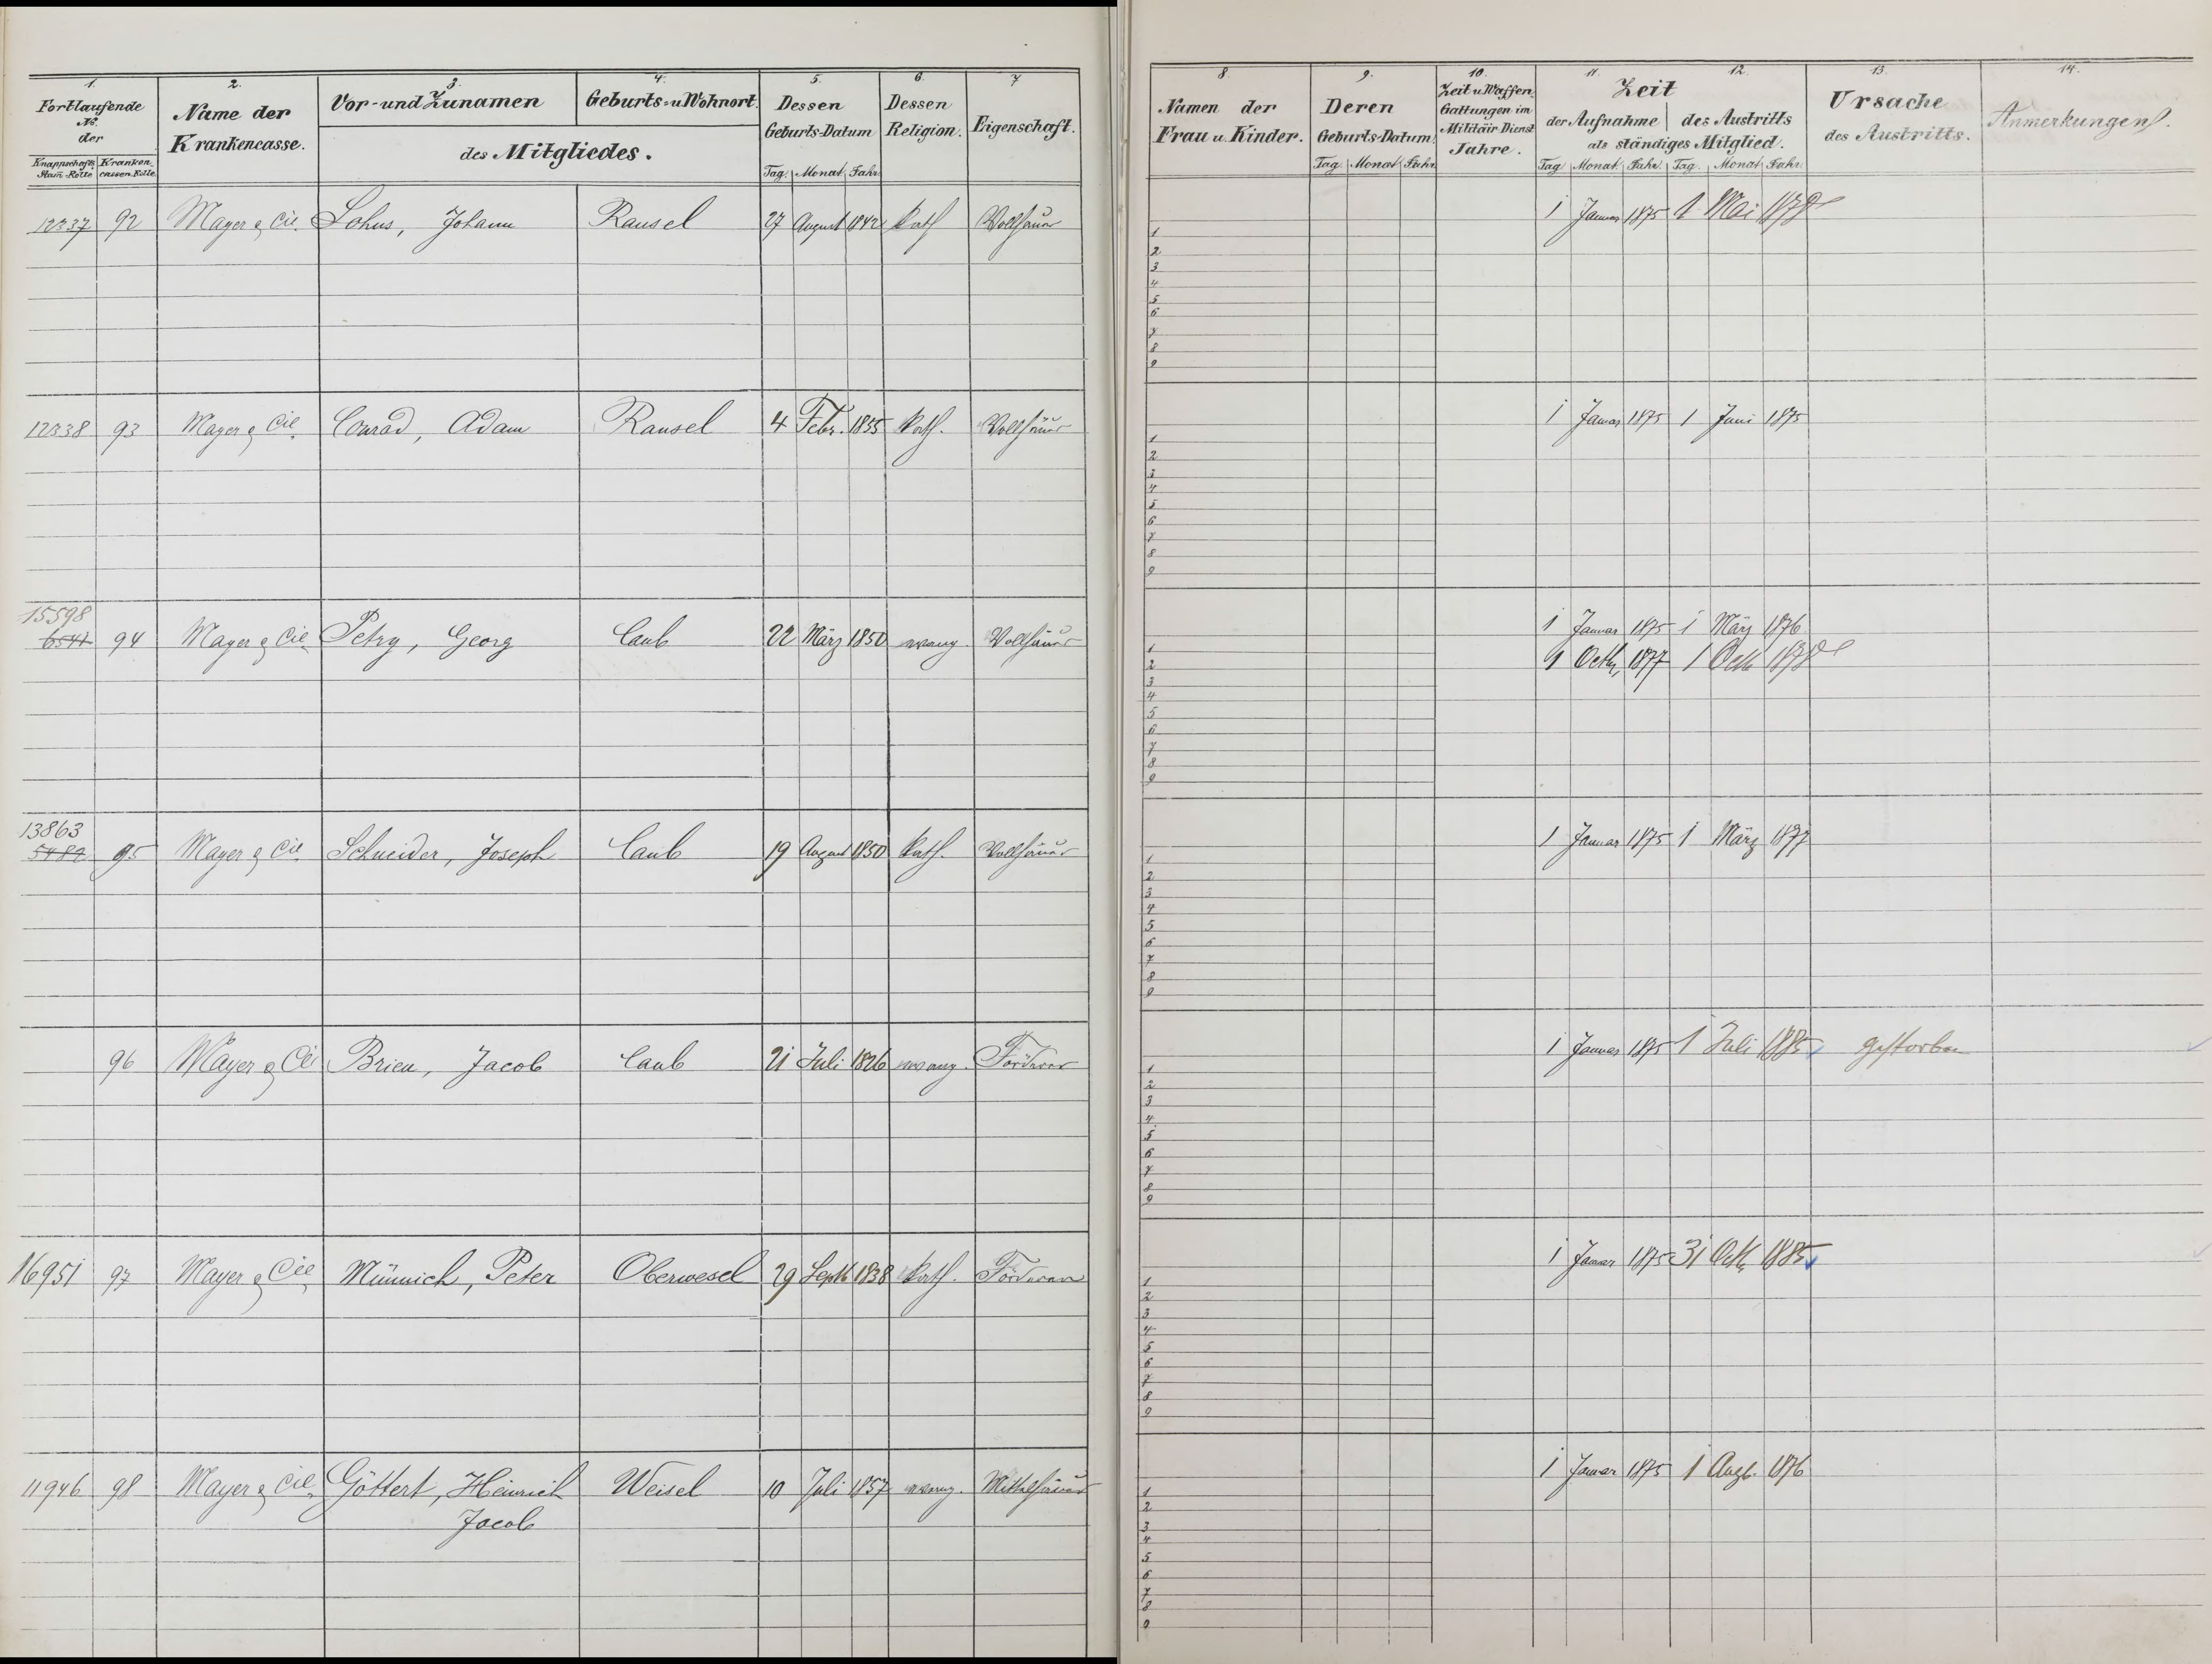 1. 2. 3. 4. 5. 6. 7
Fortlaufende No. der
Knappschafts Stam-Rolle Kranken cassen-Rolle
Name der Krankencasse.
Vor- und Zunamen
Geburts- u Wohnort.
des Mitgliedes.
Dessen Geburts-Datum
Tag. Monat Jahr
Dessen Religion.
Eigenschaft.
12337 92 Mayer & Cie. Lohus, Johann Ransel 27 August 1842 Kath Vollhäuer
12338 93 Mayer & Cie. Conrad, Adam Ransel 4 Febr. 1855 Kath. Vollhäuer
15598
6541 94 Mayer & Cie. Petry, Georg Caub 22 März 1850 evang. Vollhäuer
13863
5482 95 Mayer & Cie. Schneider, Joseph Caub 19 August 1850 Kath. Vollhäuer
96 Mayer & Cie Brieu, Jacob Caub 21 Juli 1826 evang. Förderer
16951 97 Mayer & Cie. Münnich, Peter Oberwesel 29 Septb 1838 Kath. Förderer
11946 98 Mayer & Cie. Göttert, Heinrich Weisel 10 Juli 1857 evang. Mittelhäuer
Jacob
8. 9. 10. 11. 12. 13. 14.
Namen der Frau u. Kinder.
Deren Geburts-Datum.
Tag Monat Jahr
Zeit u Waffen Gattungen im Militäir Dienst Jahre.
Zeit
der Aufnahme des Austritts
als ständiges Mitglied.
Tag Monat Jahr. Tag. Monat Jahr.
Ursache des Austritts.
Anmerkungen.
1 Januar 1875 1 Mai 1878
1
2
3
4
5
6
7
8
9
1 Januar 1875 1 Juni 1875
1
2
3
4
5
6
7
8
9
1 Januar 1875 1 März 1876
1
1 Octb. 1877 1 Octb 1878
2
3
4
5
6
7
8
9
1 Januar 1875 1 März 1877
1
2
3
4
5
6
7
8
9
1 Januar 1875 1 Juli 1885 gestorben
1
2
3
4
5
6
7
8
9
1 Januar 1875 31 Octb 1885
1
2
3
4
5
6
7
8
9
1 Januar 1875 1 Augt. 1876
1
2
3
4
5
6
7
8
9